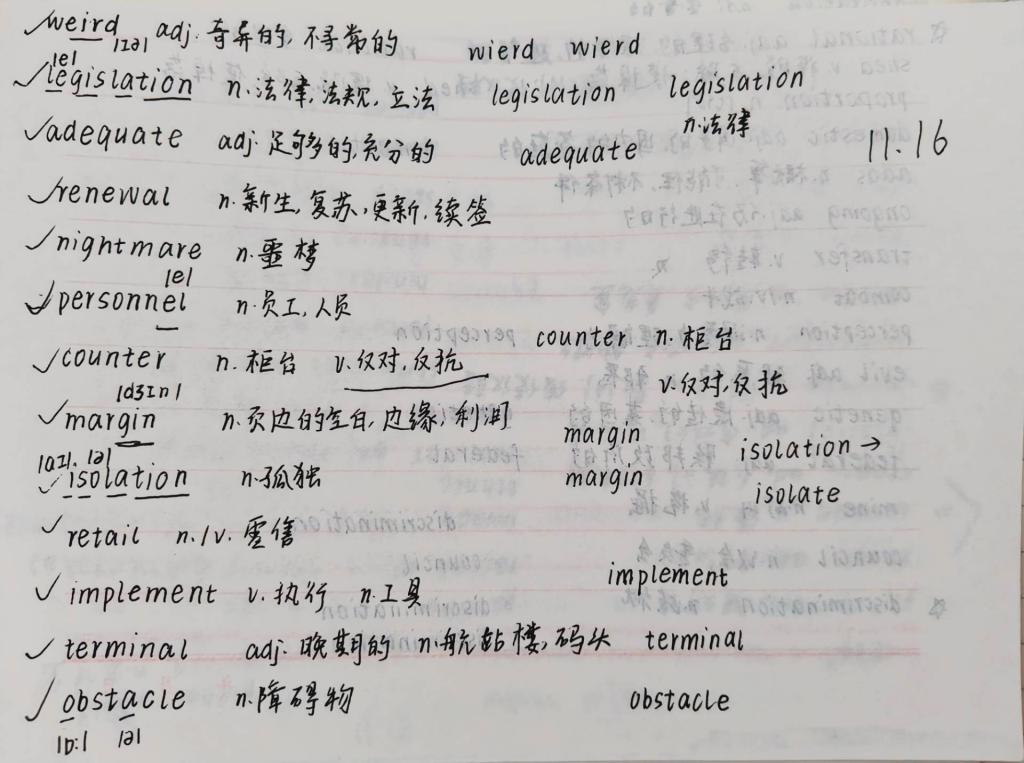 weird adj. 奇异的, 不寻常的 wierd wierd
/ɪə/
/e/
legislation n. 法律, 法规, 立法 legislation legislation
n. 法律
adequate adj. 足够的, 充分的 adequate 11.16
renewal n. 新生, 复苏, 更新, 续签
nightmare n. 噩梦
/e/
personnel n. 员工, 人员
counter n. 柜台 v. 反对, 反抗 counter n. 柜台
v. 反对, 反抗
/dʒɪn/
margin n. 页边的空白, 边缘, 利润 margin isolation →
/aɪ/. /ə/
isolation n. 孤独 margin isolate
retail n./v. 零售
implement v. 执行 n. 工具 implement
terminal adj. 晚期的 n. 航站楼, 码头 terminal
obstacle n. 障碍物 obstacle
/ɒ:/ /ə/